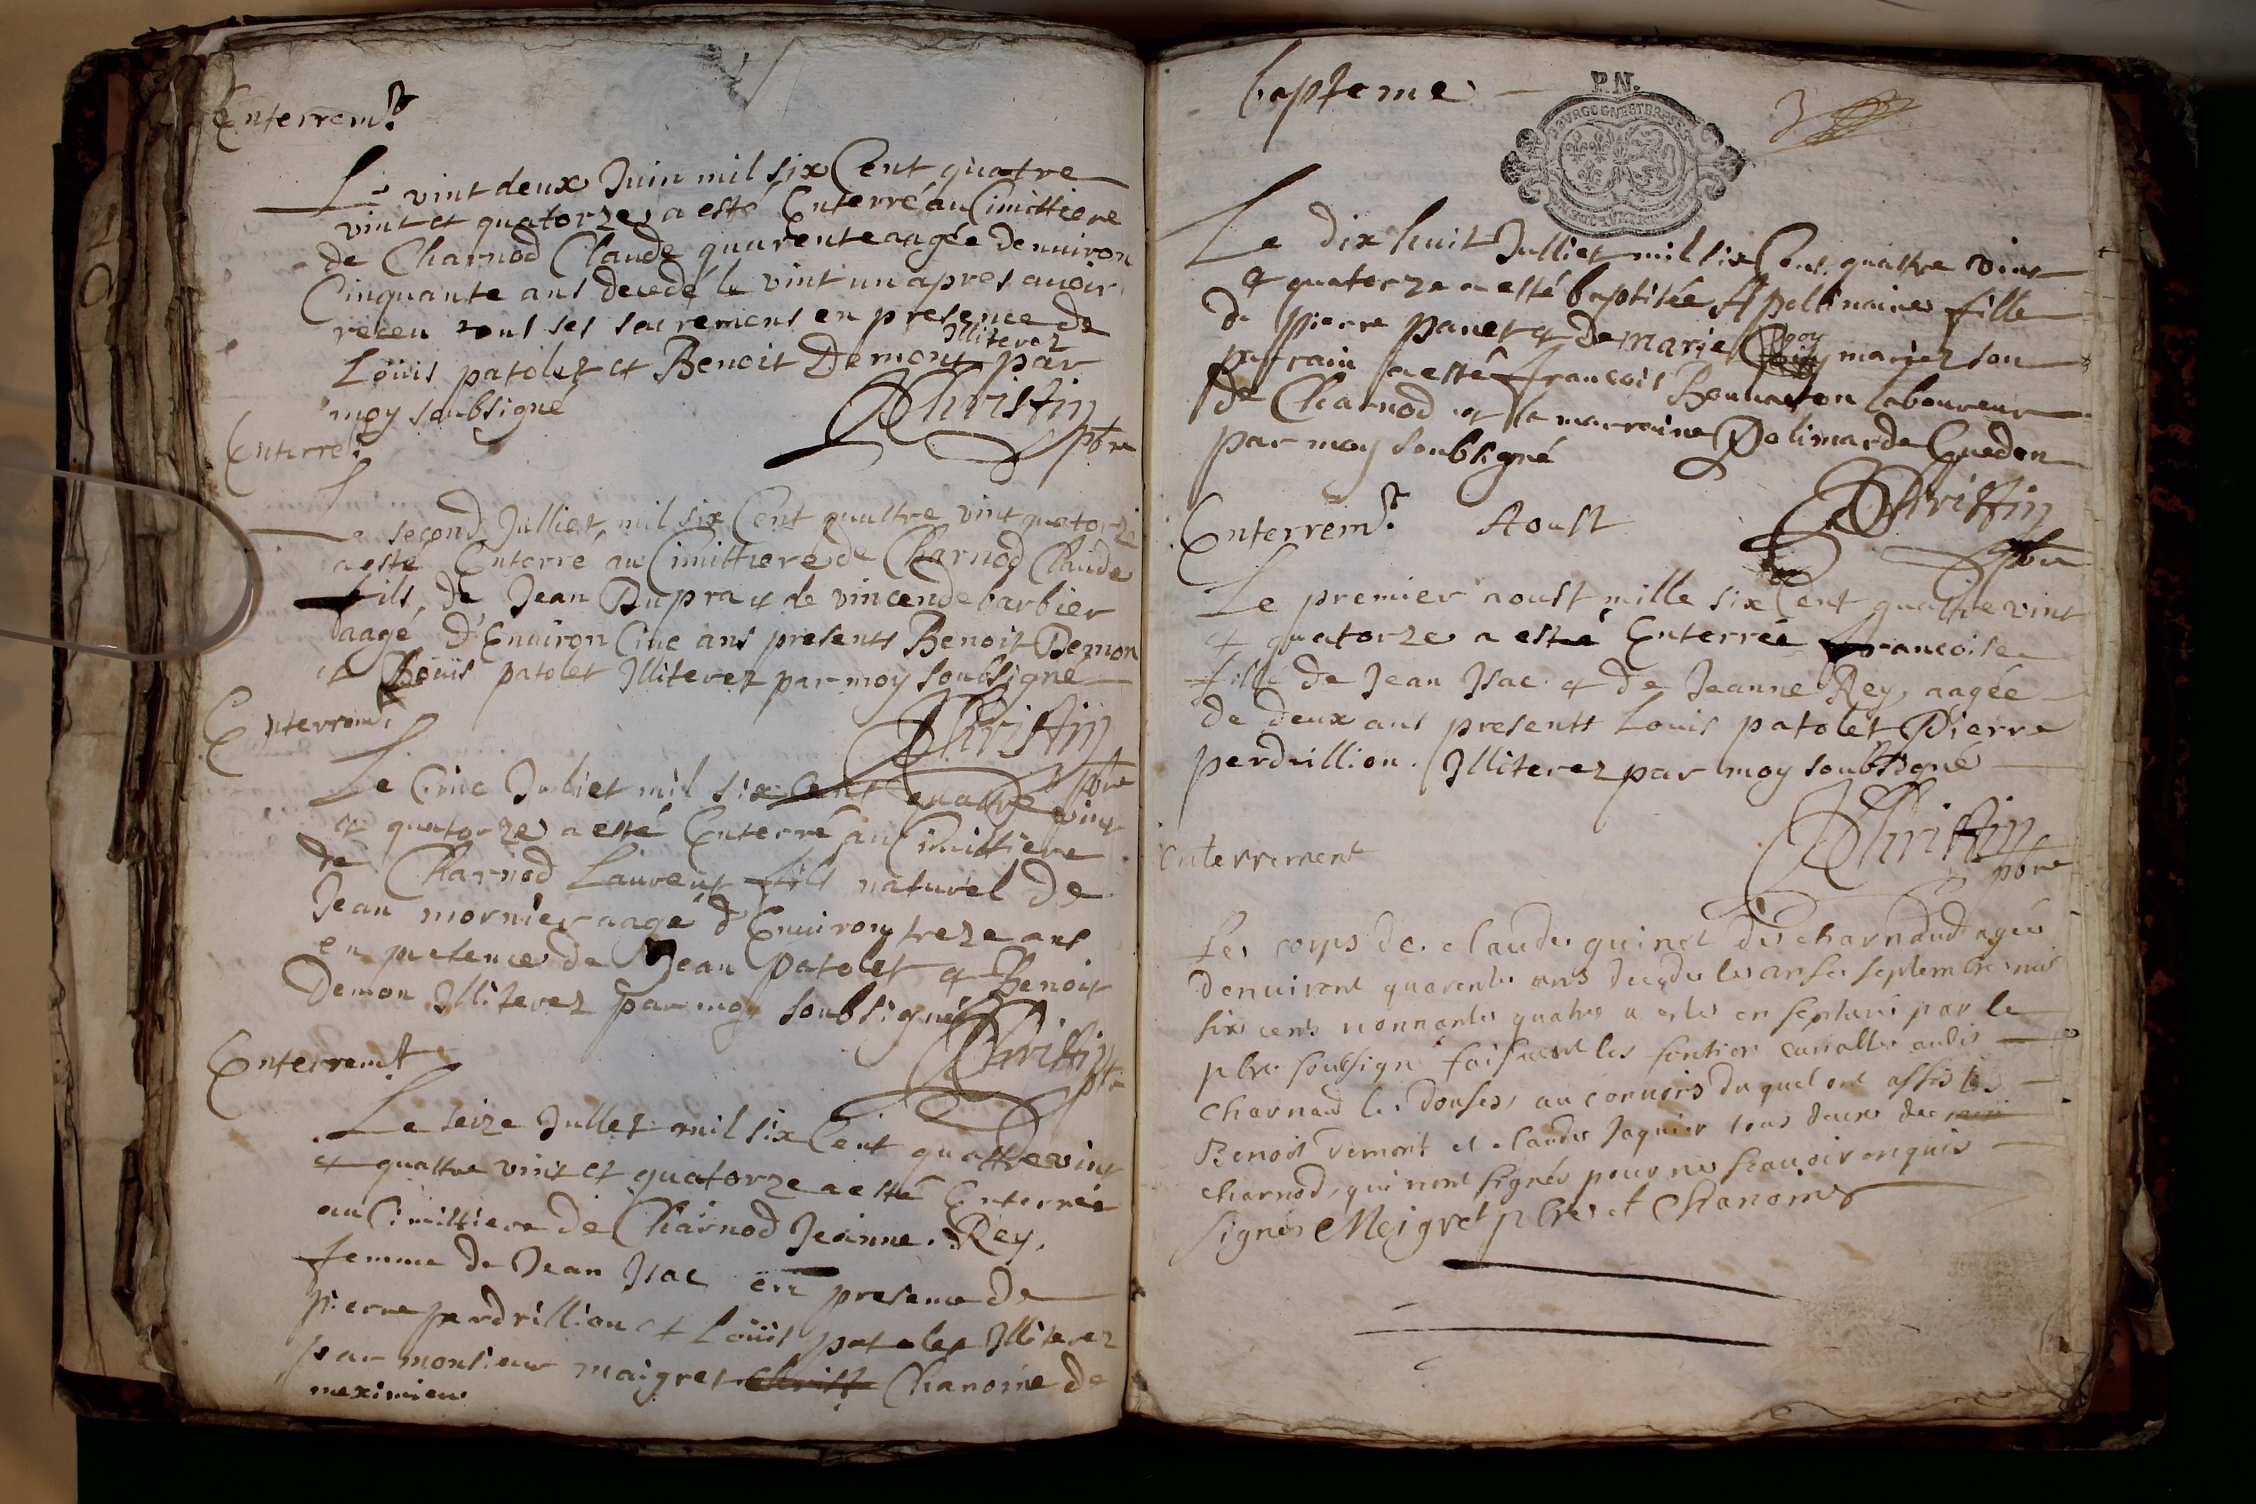 Enterremt.
Le vint deux Juin mil six Cent quatre
vint et quatorze a esté Enterré au Cimittiere
de Charnod Claude quarente aagée denuiron
Cinquante ans decedé le vint un apres auoir
receu tous ses sacremens en presence de
Illiterez
Loüis patolet et Benoit Demont par
moy soubsigné
Christin
pbre
Enterremt.
Le second Julliet mil six Cent quattre vint quatorze
a esté Enterré au Cimittiere de Charnod Claude
fils de Jean Dupra et de vincende barbier
aagé d'Enuiron Cinc ans presents Benoit Demon
et Loüis patolet Illiterez par moy soubsigné
Christin
pbre
Enterremt.
Le Cinc Julliet mil six Cent quattre vint
et quatorze a esté Enterré au Cimittiere
de Charnod Laurent fils naturel de
Jean mornier aagé d'Enuiron treze ans
en presence de Jean patolet et Benoit
Demon Illiterez par moy soubsigné
Christin
pbre
Enterremt
Le seize Jullet mil six Cent quattre vint
et quattre vint et quatorze a esté Enterrée
au Cimittiere de Charnod Jeanne Rey
femme de Jean Isac en presence de
pierre perdrillion et Loüis patolet Illiterez
par monsieur maigret Christ Chanoine de
meximieu
bapteme
P.N.
3
Le dix huit Julliet mil six Cent quattre vint
et quatorze a esté baptisée Apollinaire fille
de pierre panet et de marie mariez son
parrain a esté francois Bonnardon laboureur
de Charnod et la marraine Dolimarde Guedon
par moy soubsigné
Christin
pbre
Enterremt. Aoust
Le premier aoust mille six Cent quattre vint
et quatorze a esté Enterrée francoise
fille de Jean Isac et de Jeanne Rey aagée
de deux ans presents Louis patolet Pierre
perdrillion Illiterez par moy soubsigné
Christin
pbre
enterrement
Le corps de claude guinet de charnaud agée
denuiront quarente ans decede le onse septembre mil
six cens nonnante quatre a este enseputuré par le
pbre soubsigné faisant les fontion curialle audit
charnaud le douse au conuois duquel ont assistes
Benoit demont et claude Jaquier tous deux de
charnod qui nont signés pour ne scauoir enquis
signés Meigret pbre et Chanoine